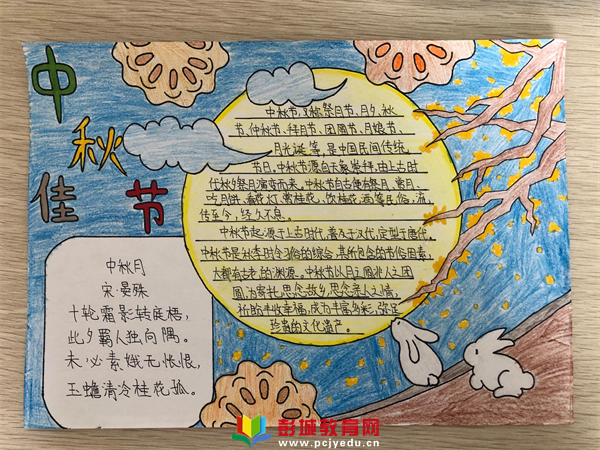 中
秋
佳
节
中秋节，又称祭月节、月夕、秋
节、仲秋节、拜月节、团圆节、月娘节、
月光诞等，是中国民间传统
节日。中秋节源自天象崇拜，由上古时
代秋夕祭月演变而来。中秋节自古便有祭月、赏月、
吃月饼、看花灯、赏桂花、饮桂花酒等民俗，流
传至今，经久不息。
中秋节起源于上古时代，普及于汉代，定型于唐代。
中秋节是秋季时令习俗的综合，其所包含的节俗因素，
大都有古老的渊源。中秋节以月之圆兆人之团
圆，为寄托思念故乡，思念亲人之情，
祈盼丰收幸福，成为丰富多彩、弥足
珍贵的文化遗产。
中秋月
宋·晏殊
十轮霜影转庭梧，
此夕羁人独向隅。
未必素娥无怅恨，
玉蟾清冷桂花孤。
彭城教育网
www.pcjyedu.cn